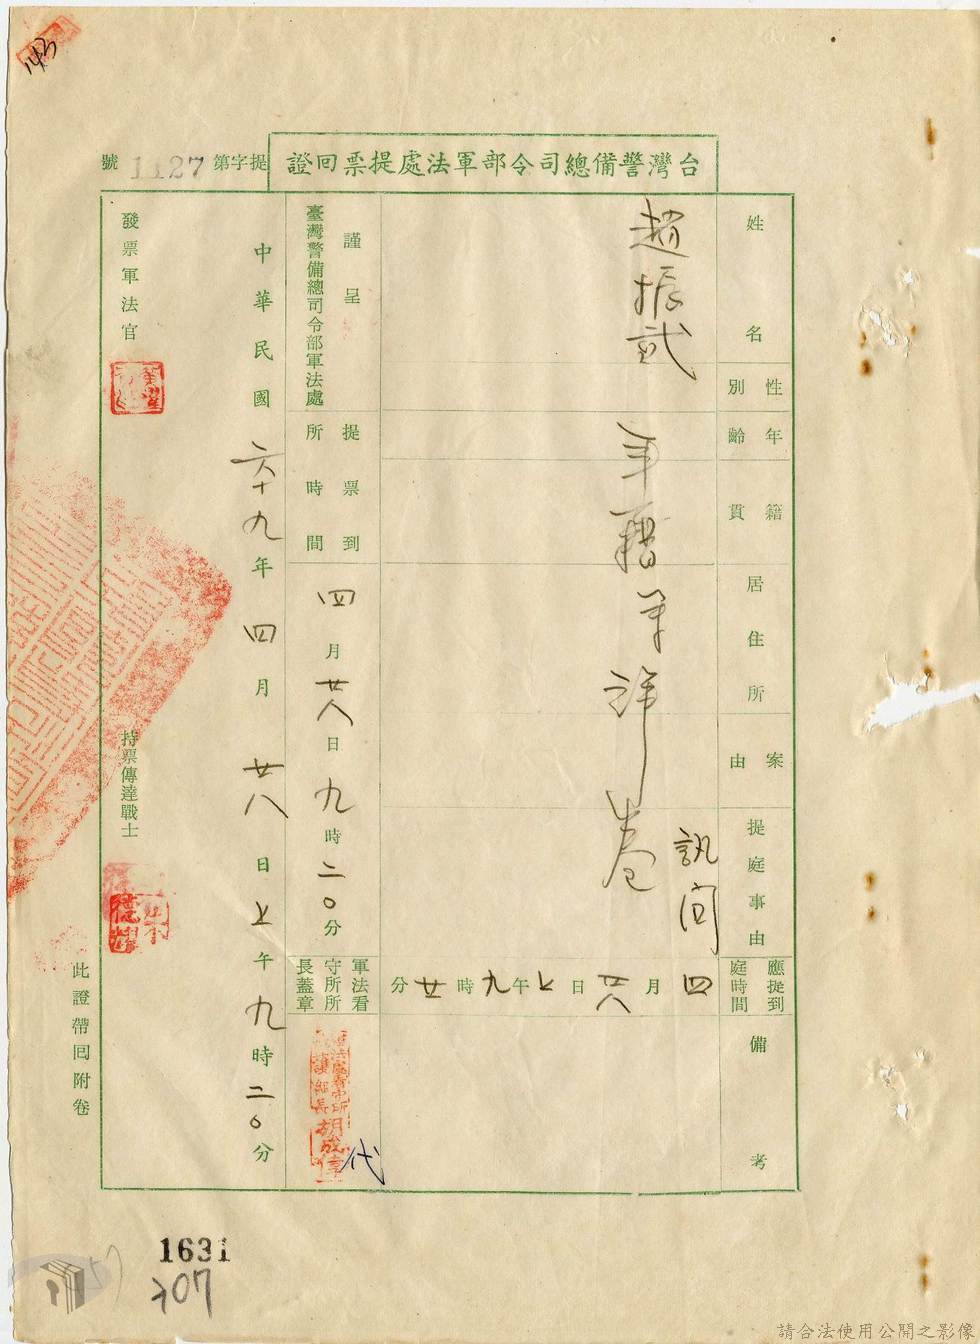 143
台灣警備總司令部軍法處提票回證
提字第1127號
姓名
趙振貳
性別
年齡
籍貫
年籍羊詳卷
居住所
案由
提庭事由
訊問
應提到庭時間
四月廿八日上午九時廿分
備考
謹呈
臺灣警備總司令部軍法處
提票到所時間
四月廿八日九時二〇分
軍法看守所所長蓋章
胡成
代
中華民國六十九年四月廿八日上午九時二〇分
發票軍法官
持票傳達戰士
德
此證帶回附卷
1631
307
請合法使用公開之影像